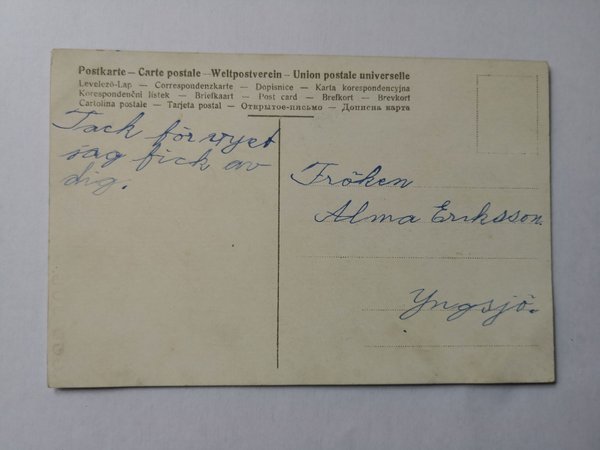 Postkarte — Carte postale — Weltpostverein — Union postale universelle
Levelező-Lap — Correspondenzkarte — Dopisnice — Karta korespondencyjna
Korespondenční lístek — Briefkaart — Post card — Brefkort — Brevkort
Cartolina postale — Tarjeta postal — Открытое-письмо — Дописна карта
Tack för myet
jag fick av
dig.
Fröken
Alma Eriksson.
Yngsjö.